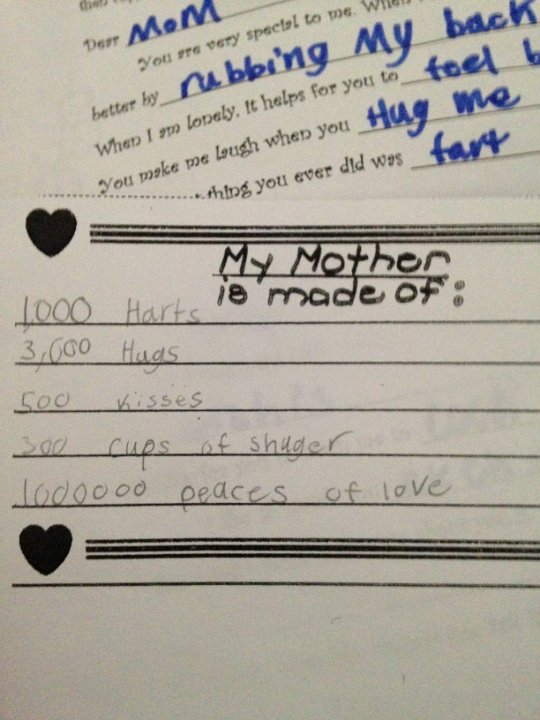 Dear MoM
You are very special to me. When
better by rubbing My back
When I am lonely, it helps for you to
You make me laugh when you Hug me
thing you ever did was fart
My Mother
is made of:
1,000 Harts
3,000 Hugs
500 kisses
300 cups of shuger
1000000 peaces of love